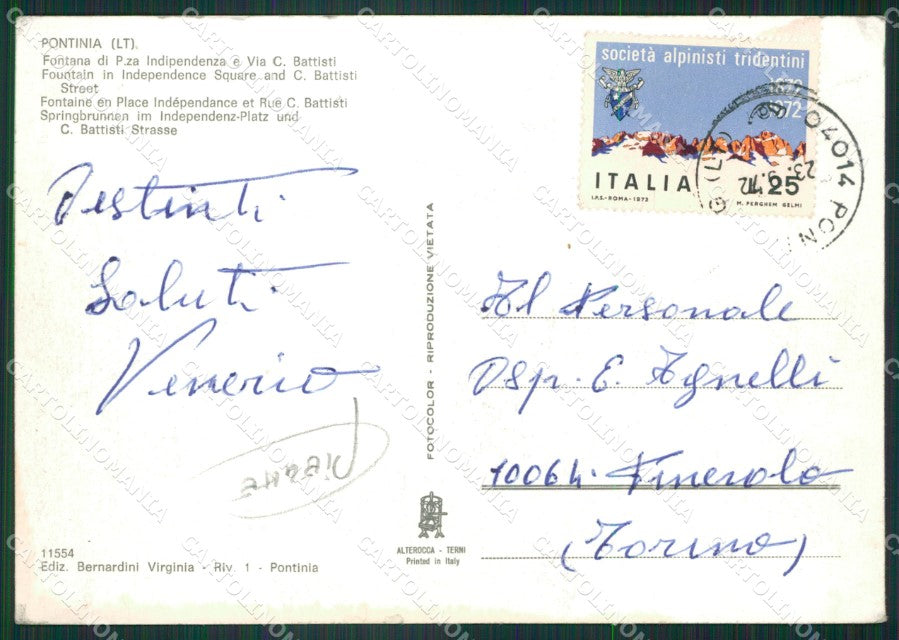 PONTINIA (LT).
Fontana di P.za Indipendenza e Via C. Battisti
Fountain in Independence Square and C. Battisti
Street
Fontaine en Place Indépendance et Rue C. Battisti
Springbrunnen im Independenz-Platz und
C. Battisti Strasse
Distinti
Saluti
Venerio
11554
Ediz. Bernardini Virginia - Riv. 1 - Pontinia
FOTOCOLOR - RIPRODUZIONE VIETATA
ALTEROCCA - TERNI
Printed in Italy
società alpinisti tridentini
1872
1972
ITALIA 25
I.P.S. - ROMA - 1972
M. PERGHEM GELMI
04014 PON
(LT)
23.
Al Personale
Osp. E. Agnelli
10064. Pinerolo
(Torino)
CARTOLINOMANIA